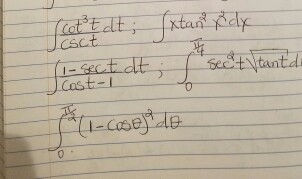 ∫ cot³t/csct dt ; ∫ xtan²x² dx
∫ 1-sect/cost-1 dt ; ∫₀^(π/4) sec²t √tant d
∫₀^(π/2) (1-cosθ)² dθ